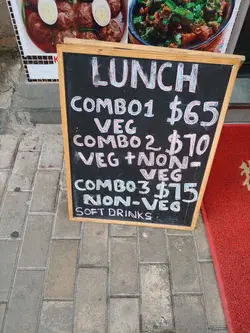 LUNCH
COMBO1 $65
VEG
COMBO 2 $70
VEG + NON-
VEG
COMBO3 $75
NON-VEG
SOFT DRINKS